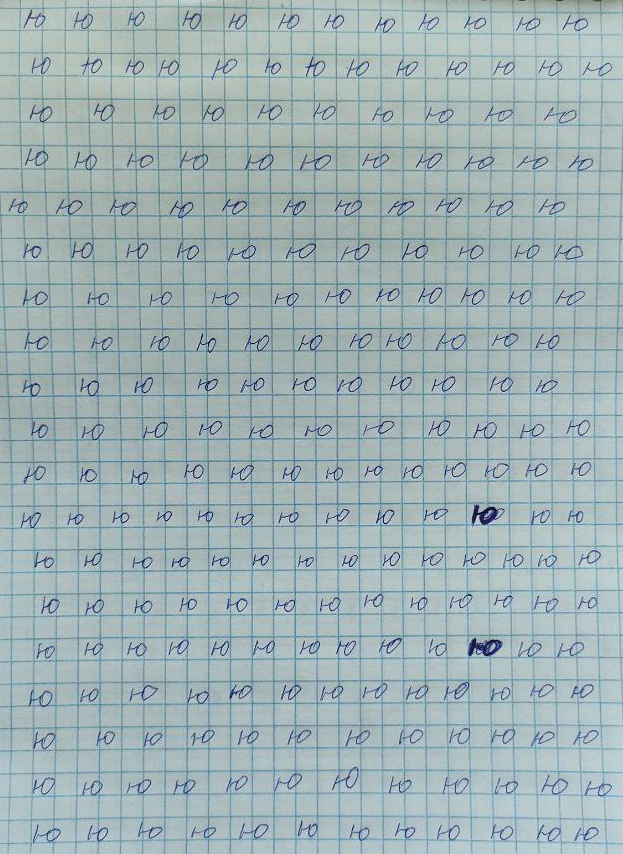 ю ю ю ю ю ю ю ю ю ю ю ю
ю ю ю ю ю ю ю ю ю ю ю ю ю
ю ю ю ю ю ю ю ю ю ю
ю ю ю ю ю ю ю ю ю ю ю
ю ю ю ю ю ю ю ю ю ю ю
ю ю ю ю ю ю ю ю ю ю ю
ю ю ю ю ю ю ю ю ю ю ю
ю ю ю ю ю ю ю ю ю ю ю
ю ю ю ю ю ю ю ю ю ю ю
ю ю ю ю ю ю ю ю ю ю ю
ю ю ю ю ю ю ю ю ю ю ю ю ю
ю ю ю ю ю ю ю ю ю ю ю ю ю
ю ю ю ю ю ю ю ю ю ю ю ю ю ю
ю ю ю ю ю ю ю ю ю ю ю ю ю
ю ю ю ю ю ю ю ю ю ю ю ю ю
ю ю ю ю ю ю ю ю ю ю ю ю ю
ю ю ю ю ю ю ю ю ю ю ю ю
ю ю ю ю ю ю ю ю ю ю ю ю
ю ю ю ю ю ю ю ю ю ю ю ю